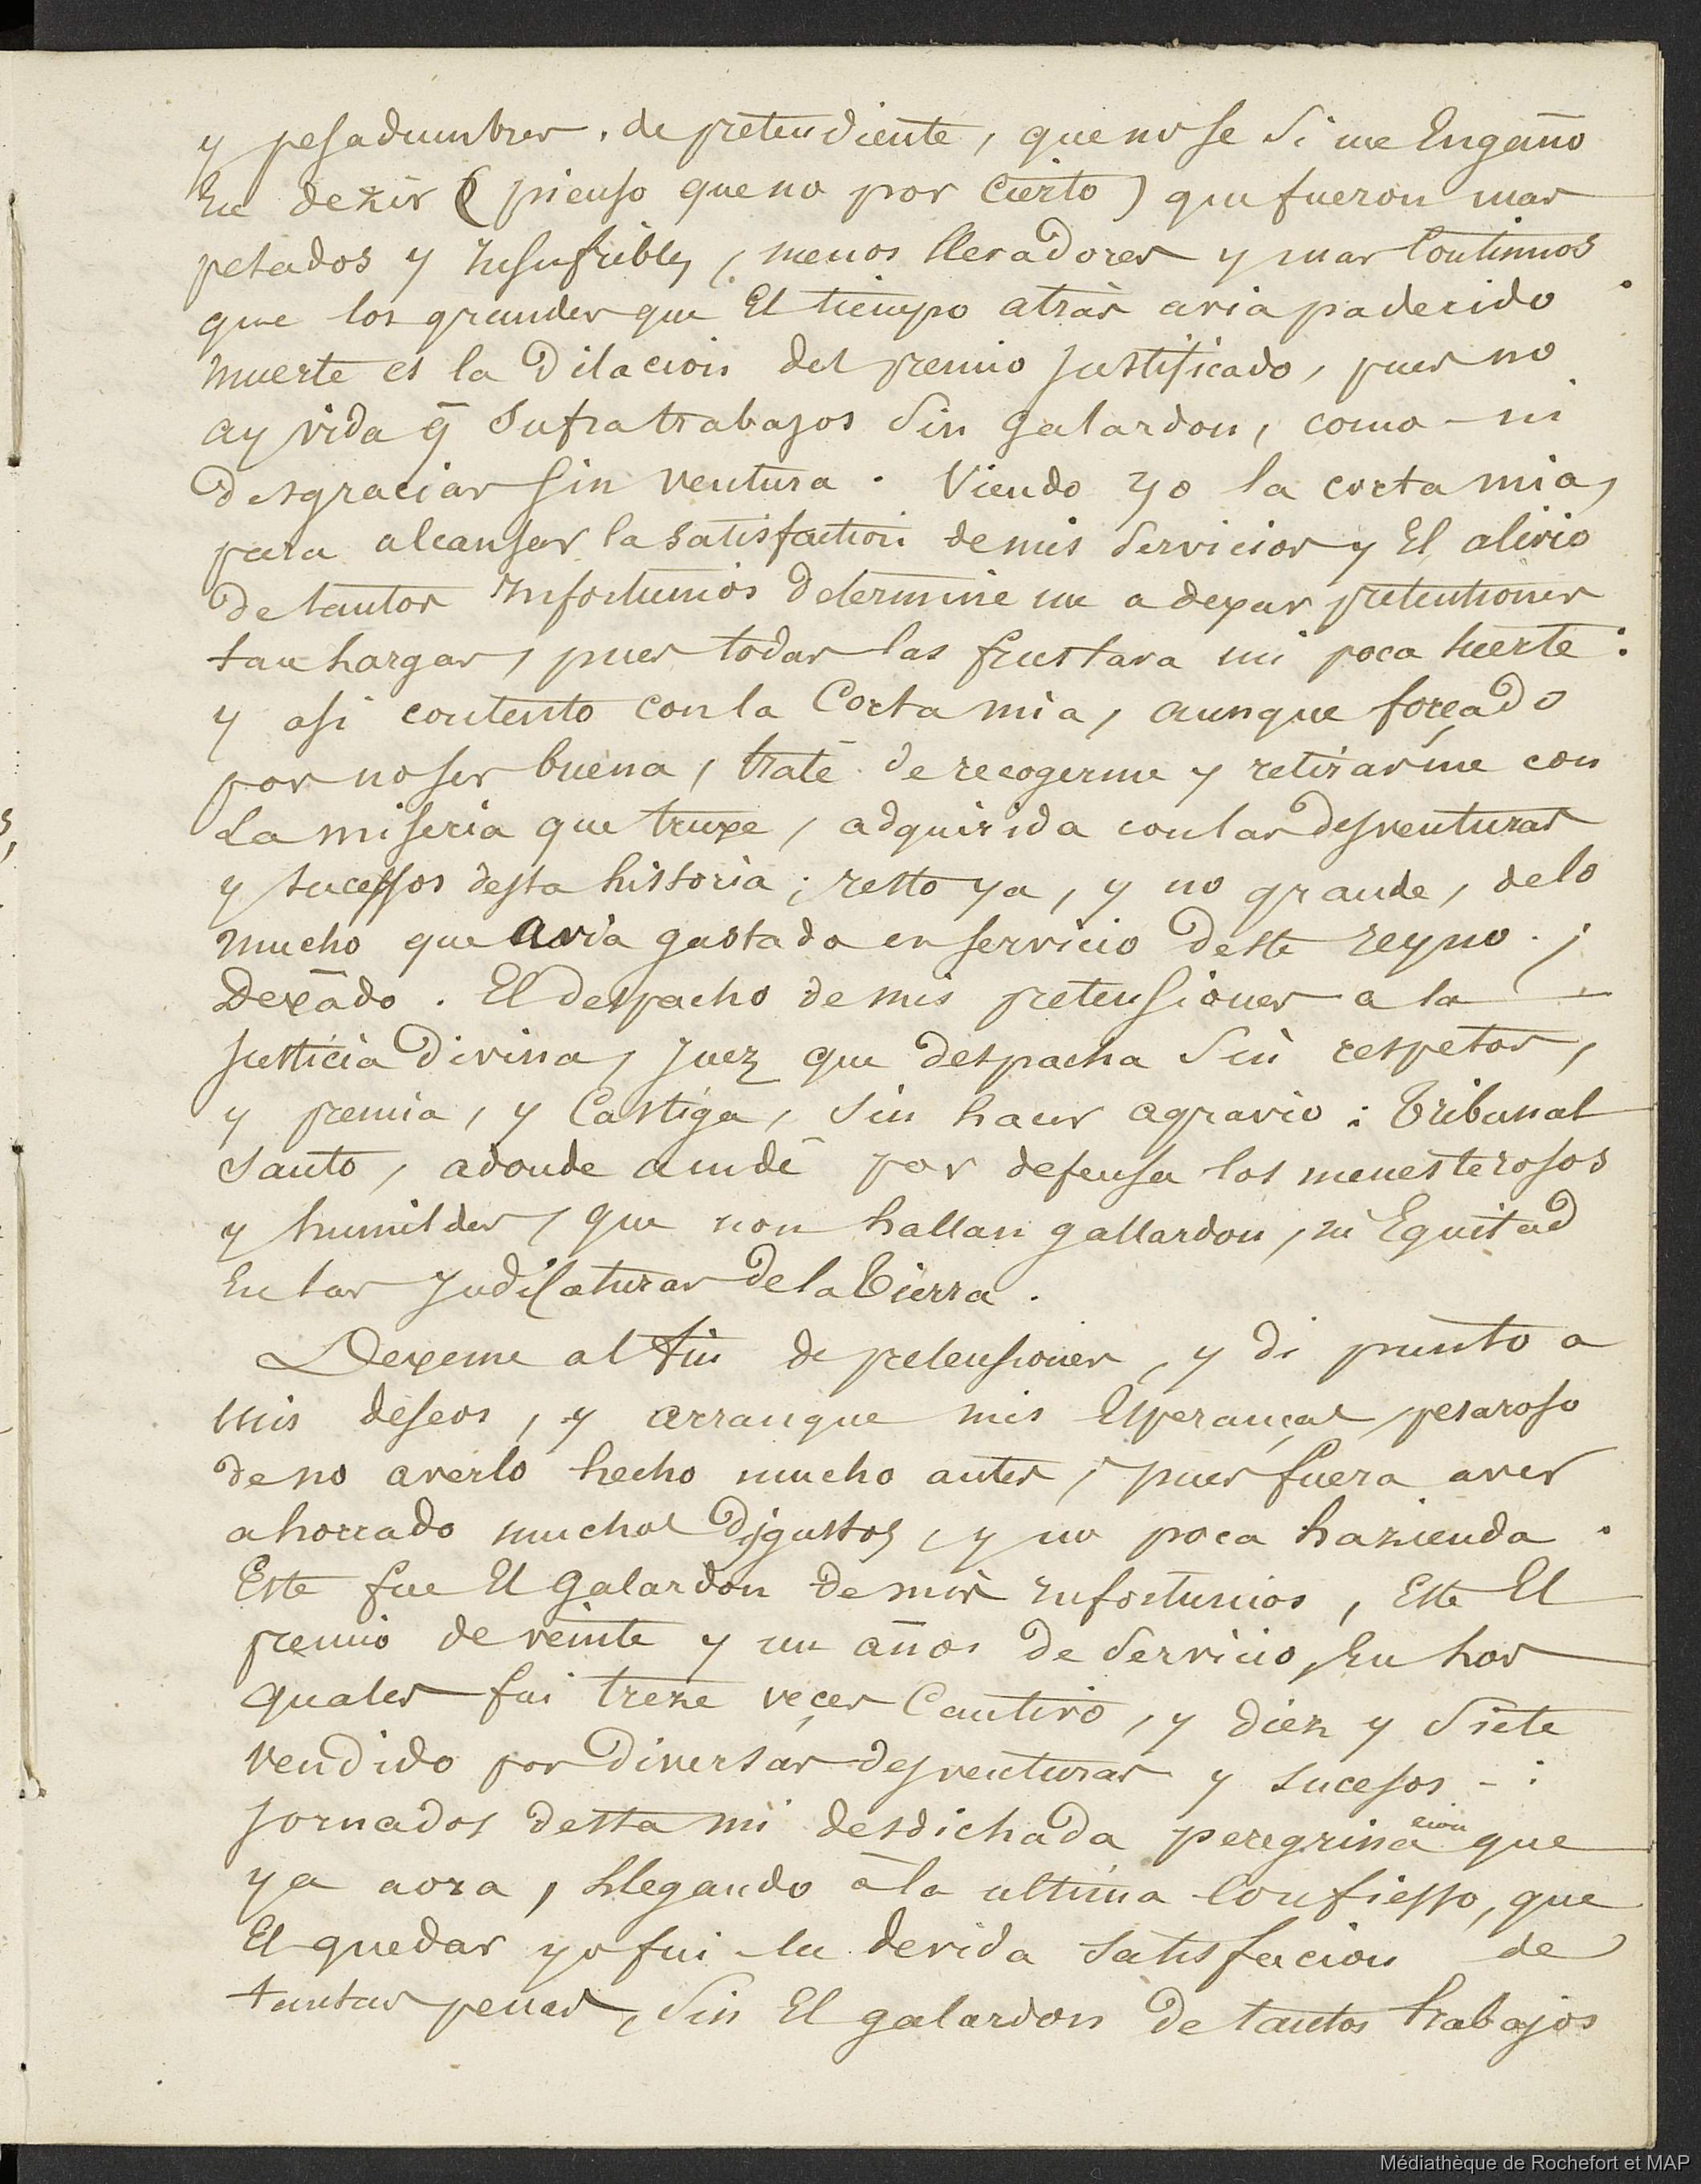 y pesadumbres . de pretendiente, que no se si me Engaño
En dezir (pienso que no por cierto) que fueron mas
pesados y Insufribles, menos llevadores y mas Continuos
que los grandes que El tiempo atrás avia padecido .
muerte es la Dilacion del premio Justificado, pues no
ay vida q̄ Sufra trabajos Sin galardon, como ni
Desgracias sin ventura . Viendo yo la corta mia,
para alcansar la satisfaction de mis Servicios y El alivio
De tantos Infortunios Determine me a dexar pretentiones
tan largas, pues todas las frustava mi poca suerte :
y asi contento con la Corta mia, aunque forçado
por no ser buena, traté de recogerme y retirarme con
La miseria que truxe, adquirida con las desventuras
y sucessos desta historia ; resto ya, y no grande, de lo
mucho que avia gastado en servicio deste reyno . ;
Dexãdo . El despacho de mis pretensiones a la
Justicia Divina, Juez que despacha Sin respetos,
y premia, y Castiga, Sin hacer agravio : Tribunal
Santo, adonde acudē por defensa los menesterosos
y humildes, que non hallan gallardon, ni Equitad
En las Judicaturas De la Tierra .
Dexeme al fin de pretensiones, y di punto a
mis deseos, y arranque mis Esperanças, pesaroso
de no averlo hecho mucho antes, pues fuera aver
ahorrado muchos Disgustos, y no poca hazienda .
Este fue El Galardon de mis Infortunios, Este El
premio de veinte y un años de Servicio, En los
quales fui treze veçes Cautivo, y diez y Siete
vendido por Diversas desventuras y sucesos - :
Jornados desta mi desdichada peregrinacion que
ya aora, Llegando à la ultima Confiesso, que
El quedar yo fui la devida satisfacion de
tantas penas, Sin El galardon de tantos trabajos
Médiathèque de Rochefort et MAP